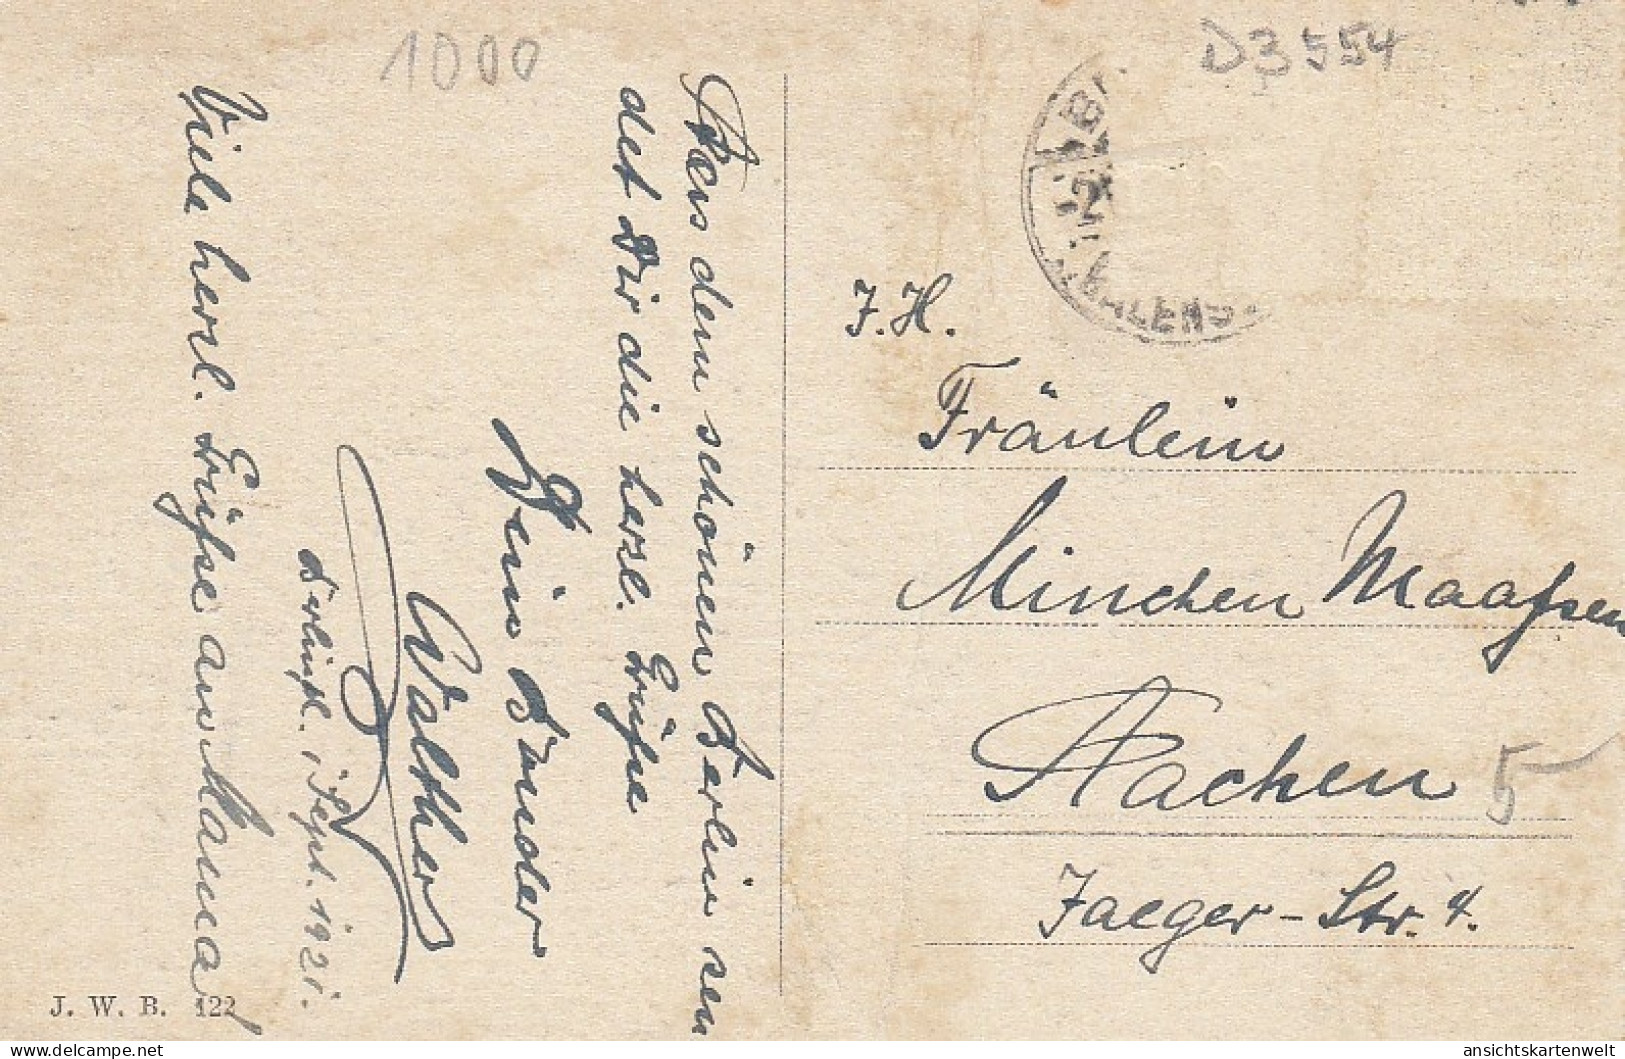 1000
D3554
Aus dem schönen Berlin sen
det Dir die herzl. Grüße
Dein Bruder
Walther
Berlin, 1 Sept. 1921.
Viele herzl. Grüße an Mama
J. H.
Fräulein
Minchen Maaßen
Aachen
5
Jaeger-Str. 4.
J. W. B. 122
ansichtskartenwelt